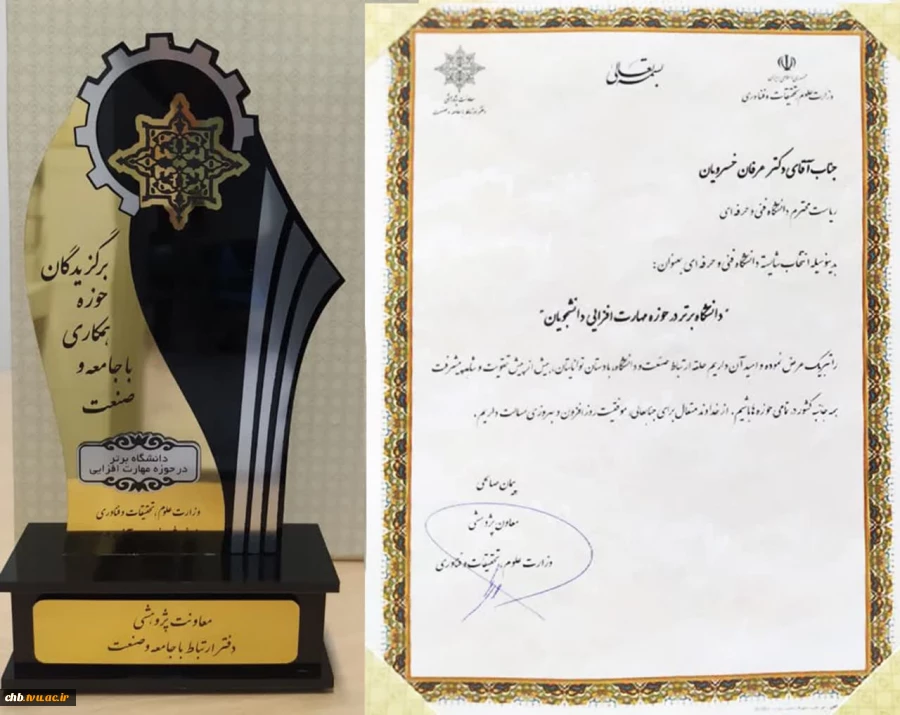 برگزیدگان
حوزه
همکاری
با جامعه و
صنعت
دانشگاه برتر
در حوزه مهارت افزایی
وزارت علوم، تحقیقات و فناوری
معاونت پژوهشی
دفتر ارتباط با جامعه و صنعت
chb.tvu.ac.ir
بسمه تعالی
جمهوری اسلامی ایران
وزارت علوم، تحقیقات و فناوری
معاونت پژوهشی
دفتر ارتباط با جامعه و صنعت
جناب آقای دکتر عرفان خسرویان
ریاست محترم دانشگاه فنی و حرفه ای
بدینوسیله انتخاب شایسته دانشگاه فنی و حرفه ای بعنوان:
"دانشگاه برتر در حوزه مهارت افزایی دانشجویان"
را تبریک عرض نموده و امید آن داریم حلقه ارتباط صنعت و دانشگاه، با دستان توانایتان، بیش از پیش تقویت و شاهد پیشرفت
همه جانبه کشور در تمامی حوزه ها باشیم. از خداوند متعال برای جنابعالی، موفقیت روز افزون و بهروزی مسالت داریم.
پیمان صالحی
معاون پژوهشی
وزارت علوم، تحقیقات و فناوری